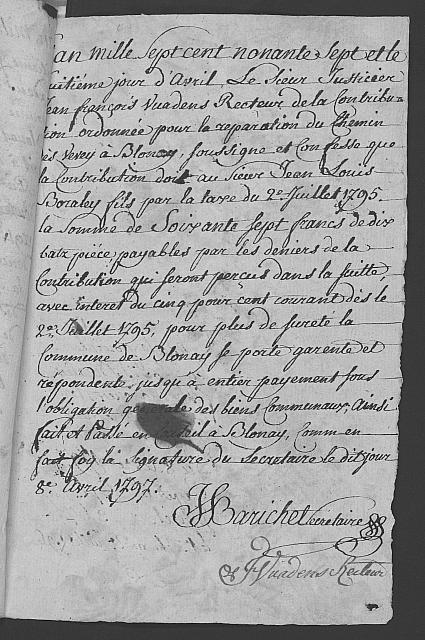 L'an mille Sept cent nonante Sept et le
huitiéme jour d'Avril, Le Sieur Justicier
Jean françois Vuadens Recteur de la Contribu=
tion ordonnée pour la reparation du Chemin
dès Vevey à Blonay, soussigne et Confesse que
la Contribution doit au Sieur Jean Louis
Boraley fils par la taxe du 2e. Juillet 1795.
la Somme de Soixante Sept francs de dix
batz piéce, payables par les deniers de la
Contribution qui seront perçus dans la suitte,
avec interet du cinq pour cent courant dès le
2e. Juillet 1795, pour plus de sureté la
Commune de Blonay se porte garente et
répondente, jusqu'à entier payement sous
l'obligation generale des biens Communaux, Ainsi
fait et Passé en à Blonay, comm en
fait foy la Signature du Secretaire le dit jour
8e. Avril 1797.
Marichet Secretaire
JfVuadens Recteur